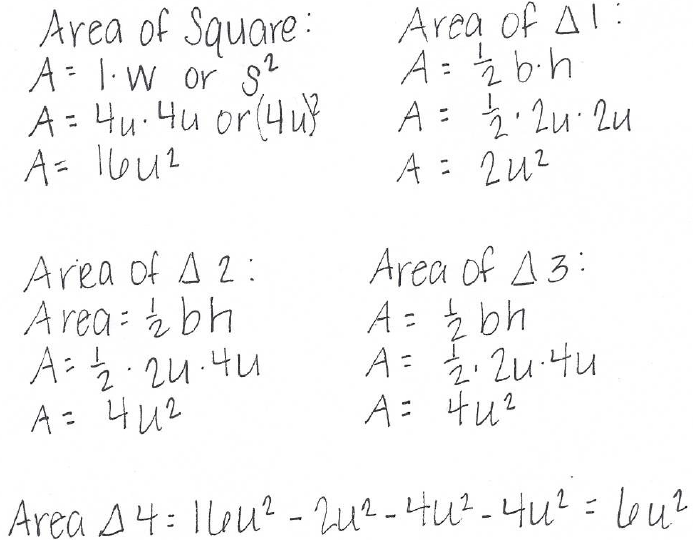 Area of Square:
A = l·w or s²
A = 4u·4u or (4u)²
A = 16u²
Area of Δ1:
A = ½ b·h
A = ½·2u·2u
A = 2u²
Area of Δ2:
Area = ½ bh
A = ½·2u·4u
A = 4u²
Area of Δ3:
A = ½ bh
A = ½·2u·4u
A = 4u²
Area Δ4 = 16u² - 2u² - 4u² - 4u² = 6u²